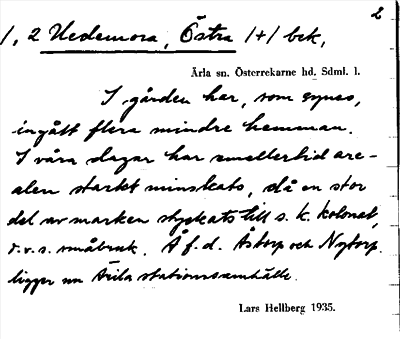 2
1, 2 Hedemora, Östra 1+1 bek,
Ärla sn. Österrekarne hd. Sdml. l.
I gården har, som synes,
ingått flera mindre hemman.
I våra dagar har emellertid are-
alen starkt minskats, då en stor
del av marken styckats till s. k. kolonat,
d.v.s. småbruk. Å f. d. Åstorp och Nytorp
ligger nu Ärla stationssamhälle.
Lars Hellberg 1935.